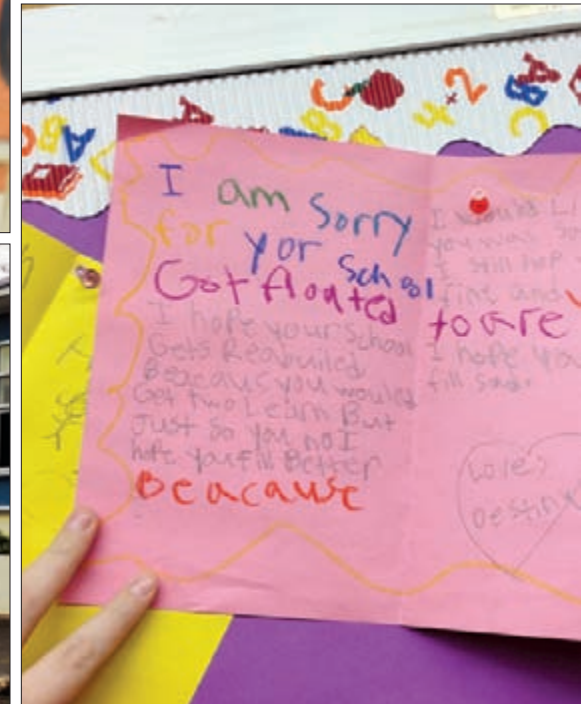 I am Sorry
for yor School
Got floated
I hope your School
Gets Reabuiled
Beacauc you would
Get two Learn But
Just So you no I
hope you Fill Better
Beacause
I would Li
you was So
I still hop
fint and
to are
I hope You
fill Sad.
Love,
Destiny